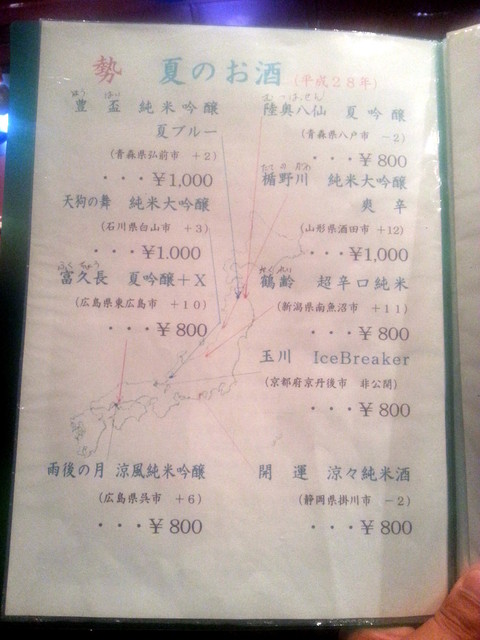 勢 夏のお酒 (平成28年)
ほう はい
豊 盃 純米吟醸
夏ブルー
(青森県弘前市 +2)
・・・¥1,000
天狗の舞 純米大吟醸
(石川県白山市 +3)
・・・¥1.000
ふく ちょう
富久長 夏吟醸+X
(広島県東広島市 +10)
・・・¥800
雨後の月 涼風純米吟醸
(広島県呉市 +6)
・・・¥800
むつはっせん
陸奥八仙 夏吟醸
(青森県八戸市 -2)
・・・¥800
たて の かわ
楯野川 純米大吟醸
爽 辛
(山形県酒田市 +12)
・・・¥1,000
かくれい
鶴齢 超辛口純米
(新潟県南魚沼市 +11)
・・・¥800
玉川 IceBreaker
(京都府京丹後市 非公開)
・・・¥800
開 運 涼々純米酒
(静岡県掛川市 -2)
・・・¥800